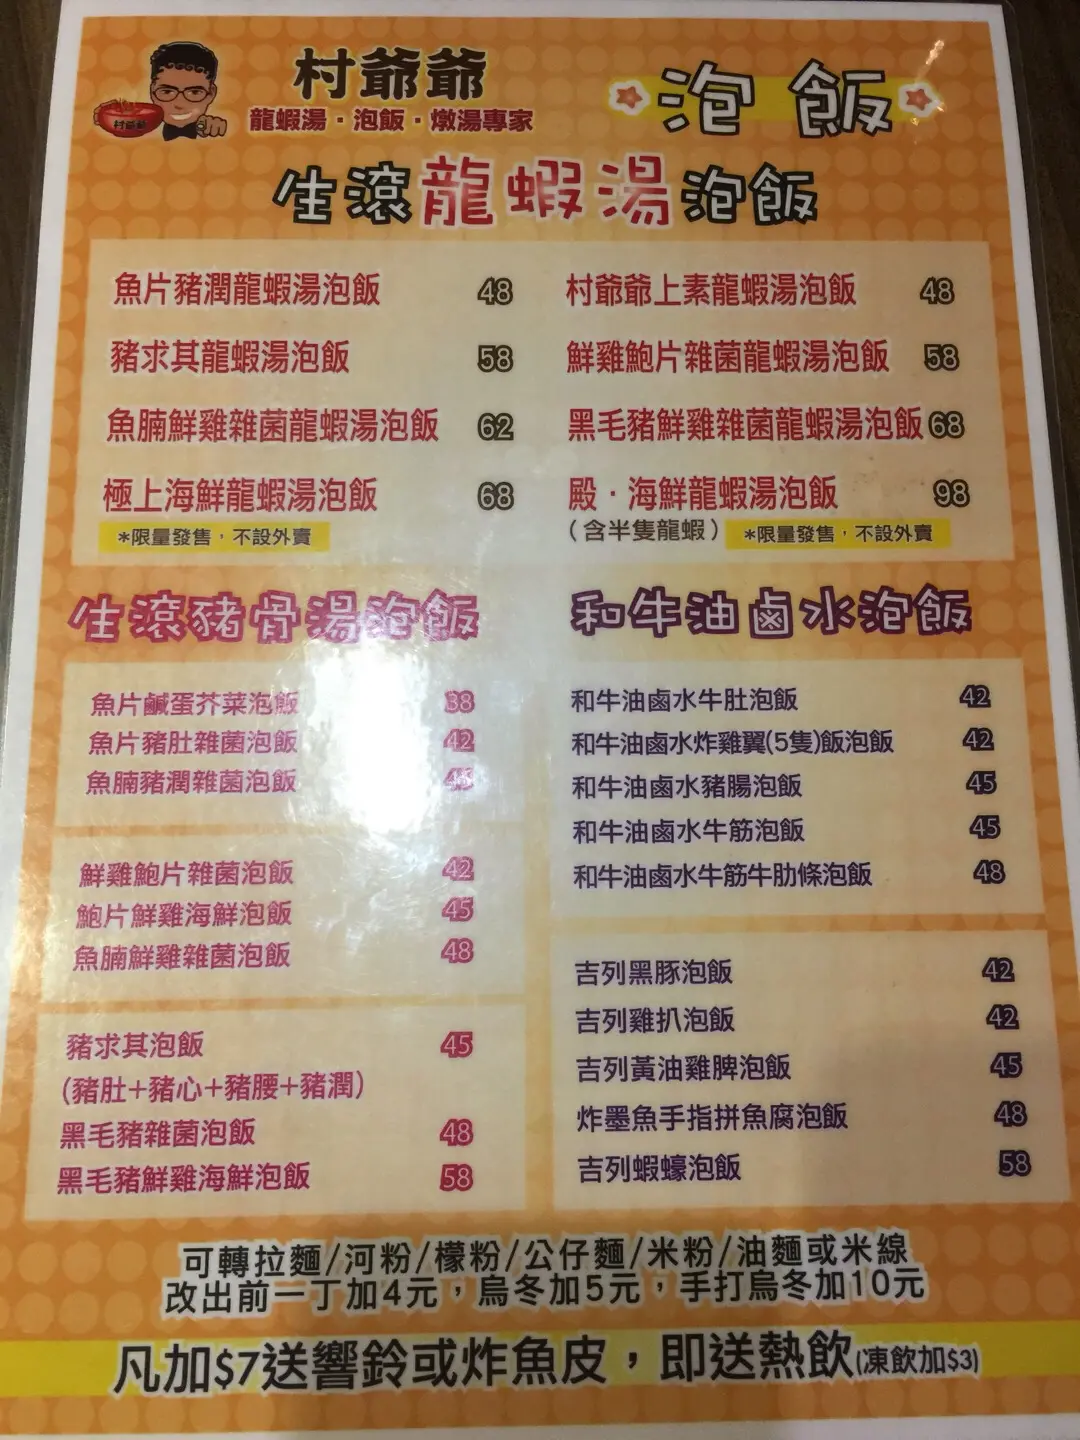 村爺爺
龍蝦湯·泡飯·燉湯專家
村爺爺
泡飯
生滾龍蝦湯泡飯
魚片豬潤龍蝦湯泡飯 48
豬求其龍蝦湯泡飯 58
魚腩鮮雞雜菌龍蝦湯泡飯 62
極上海鮮龍蝦湯泡飯 68
*限量發售，不設外賣
村爺爺上素龍蝦湯泡飯 48
鮮雞鮑片雜菌龍蝦湯泡飯 58
黑毛豬鮮雞雜菌龍蝦湯泡飯 68
殿·海鮮龍蝦湯泡飯 98
（含半隻龍蝦） *限量發售，不設外賣
生滾豬骨湯泡飯
魚片鹹蛋芥菜泡飯 38
魚片豬肚雜菌泡飯 42
魚腩豬潤雜菌泡飯 45
鮮雞鮑片雜菌泡飯 42
鮑片鮮雞海鮮泡飯 45
魚腩鮮雞雜菌泡飯 48
豬求其泡飯 45
(豬肚+豬心+豬腰+豬潤)
黑毛豬雜菌泡飯 48
黑毛豬鮮雞海鮮泡飯 58
和牛油鹵水泡飯
和牛油鹵水牛肚泡飯 42
和牛油鹵水炸雞翼(5隻)飯泡飯 42
和牛油鹵水豬腸泡飯 45
和牛油鹵水牛筋泡飯 45
和牛油鹵水牛筋牛肋條泡飯 48
吉列黑豚泡飯 42
吉列雞扒泡飯 42
吉列黃油雞脾泡飯 45
炸墨魚手指拼魚腐泡飯 48
吉列蝦蠔泡飯 58
可轉拉麵/河粉/檬粉/公仔麵/米粉/油麵或米線
改出前一丁加4元，烏冬加5元，手打烏冬加10元
凡加$7送響鈴或炸魚皮，即送熱飲(凍飲加$3)